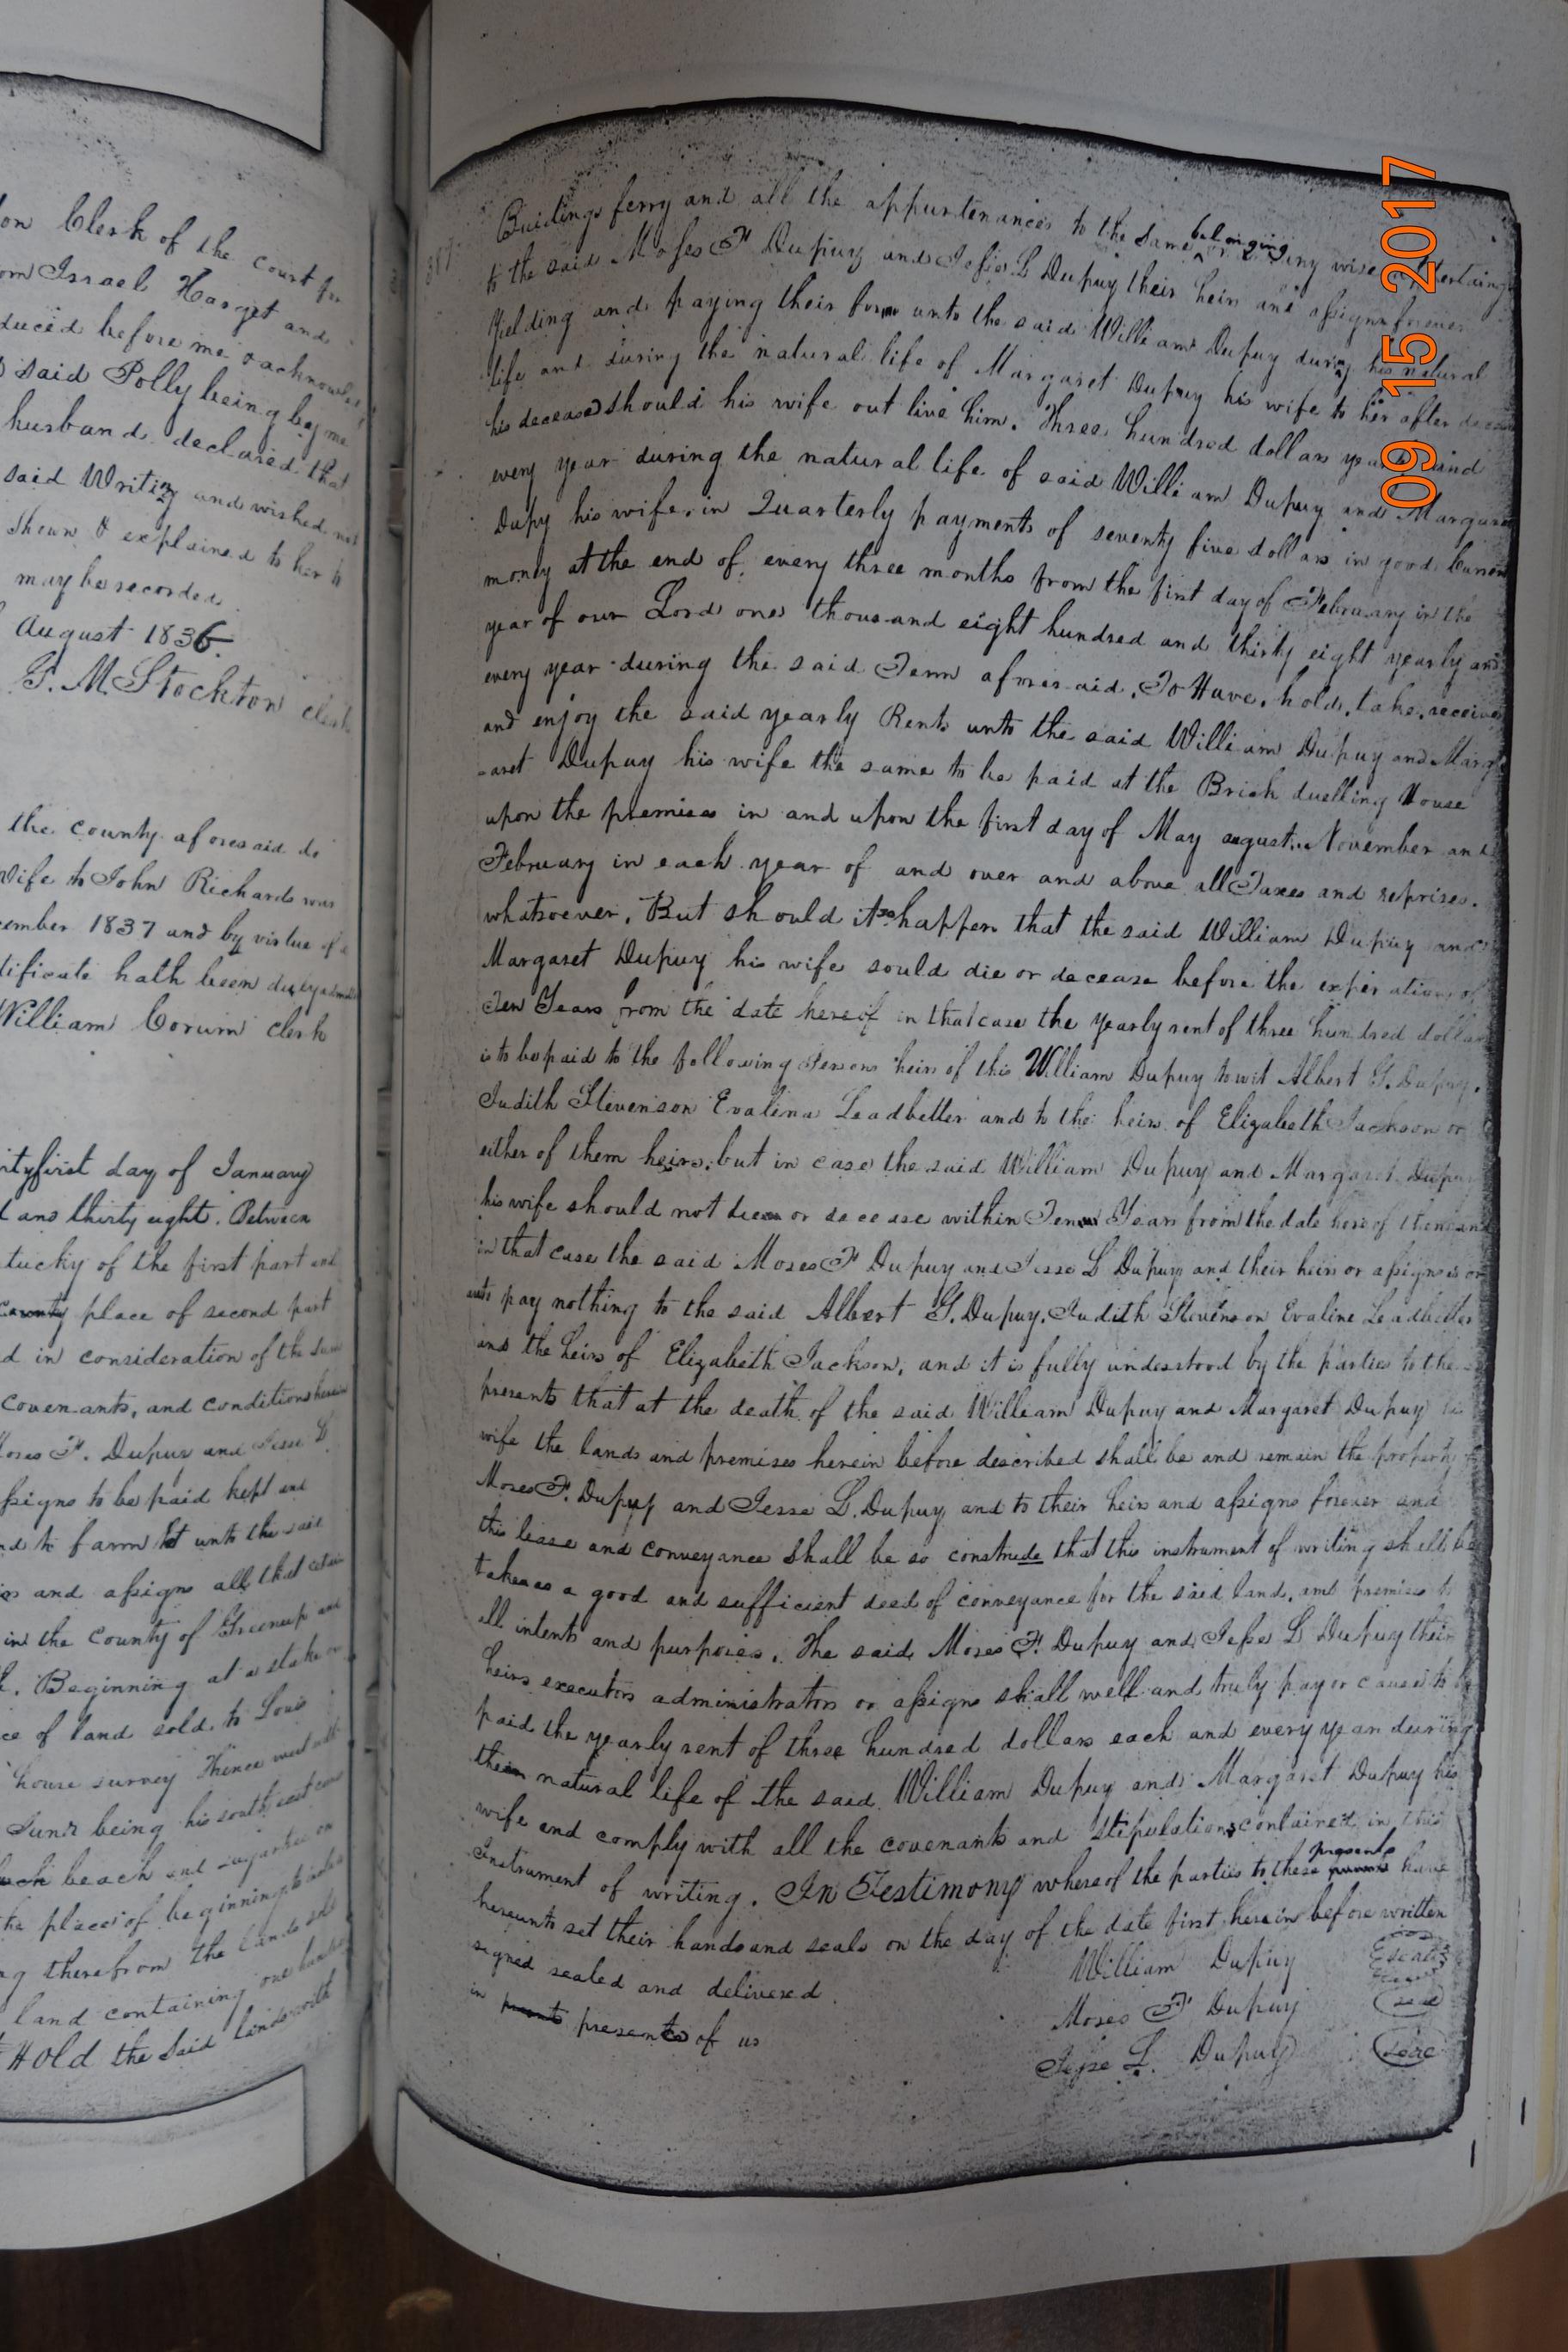 on Clerk of the court for
om Israel Harget and
duced before me & acknowled
said Polly being by me
husband declared that
said Writing and wished not
Shewn & explained to her to
may be recorded
August 1836
T. M Stockton clerk
the county aforesaid do
Wife to John Richards was
cember 1837 and by virtue of
tificate hath been duly admitted
William Corum clerk
ityfirst day of January
d and thirty eight. Between
tucky of the first part and
County place of second part
d in consideration of the sum
covenants, and conditions herein
Moses F. Dupuy and Jesse L
ssigns to be paid kept and
nd to farm let unto the said
rs and assigns all that certain
in the County of Greenup and
Beginning at a stake
ce of land sold to Louis
house survey Thence west
being his south east cor
beach and sugartree on
the place of beginning
ng therefrom the lands sold
land containing one hund
Hold the said lands with
387
Buidings ferry and all the appurtenances to the same belonging or in any wise appertaing
to the said Moses F Dupuy and Jesse L Dupuy their heirs and assigns forever
Yielding and paying their for unto the said William Dupuy during his natural
life and during the natural life of Margaret Dupuy his wife to her after
his deceased should his wife out live him. Three hundred dollars yearly and
every year during the natural life of said William Dupuy and Margaret
Dupy his wife, in Quarterly payments of seventy five dollars in good Curren
money at the end of every three months from the first day of February in the
year of our Lord one thousand eight hundred and thirty eight yearly and
every year during the said Term aforesaid. To Have, hold, take, receive
and enjoy the said yearly Rents unto the said William Dupuy and Marg
-aret Dupuy his wife the same to be paid at the Brick duelling House
upon the premises in and upon the first day of May august, November and
February in each year of and over and above all Taxes and reprises.
whatsoever. But should it so happen that the said William Dupuy and
Margaret Dupuy his wife sould die or decease before the experation of
Ten Years from the date hereof in that case the yearly rent of three hundred dollars
is to be paid to the following Persons heirs of this William Dupuy to wit Albert G. Dupuy.
Judith Stevenson Evalina Leadbetter and to the heirs of Elizabeth Jackson or
either of them heirs, but in case the said William Dupuy and Margaret Dupuy
his wife should not die or decease within Ten Years from the date hereof then and
in that case the said Moses F Dupuy and Jesse L Dupuy and their heirs or assigns is or
pay nothing to the said Albert G. Dupuy, Judith Stevenson Evaline Leadbetter
and the heirs of Elizabeth Jackson, and it is fully understood by the parties to the
presents that at the death of the said William Dupuy and Margaret Dupuy his
wife the lands and premises herein before described shall be and remain the property
Moses F. Dupuy and Jesse L. Dupuy and to their heirs and assigns forever and
this lease and conveyance shall be so construde that this instrument of writing shall be
taken as a good and sufficient deed of conveyance for the said land, and premises to
all intents and purposes. The said Moses F. Dupuy and Jesse L Dupuy their
heirs executors administrators or assigns shall well and truly pay or cause to be
paid the yearly rent of three hundred dollars each and every year during
the natural life of the said William Dupuy and Margaret Dupuy his
wife and comply with all the covenants and stipulations contained in this
Instrument of writing. In Testimony whereof the parties to these presents have
hereunto set their hands and seals on the day of the date first herein before written
signed sealed and delivered
in presents of us
William Dupuy Seal
Moses F Dupuy Seal
Jesse L. Dupuy Seal
09 15 2017